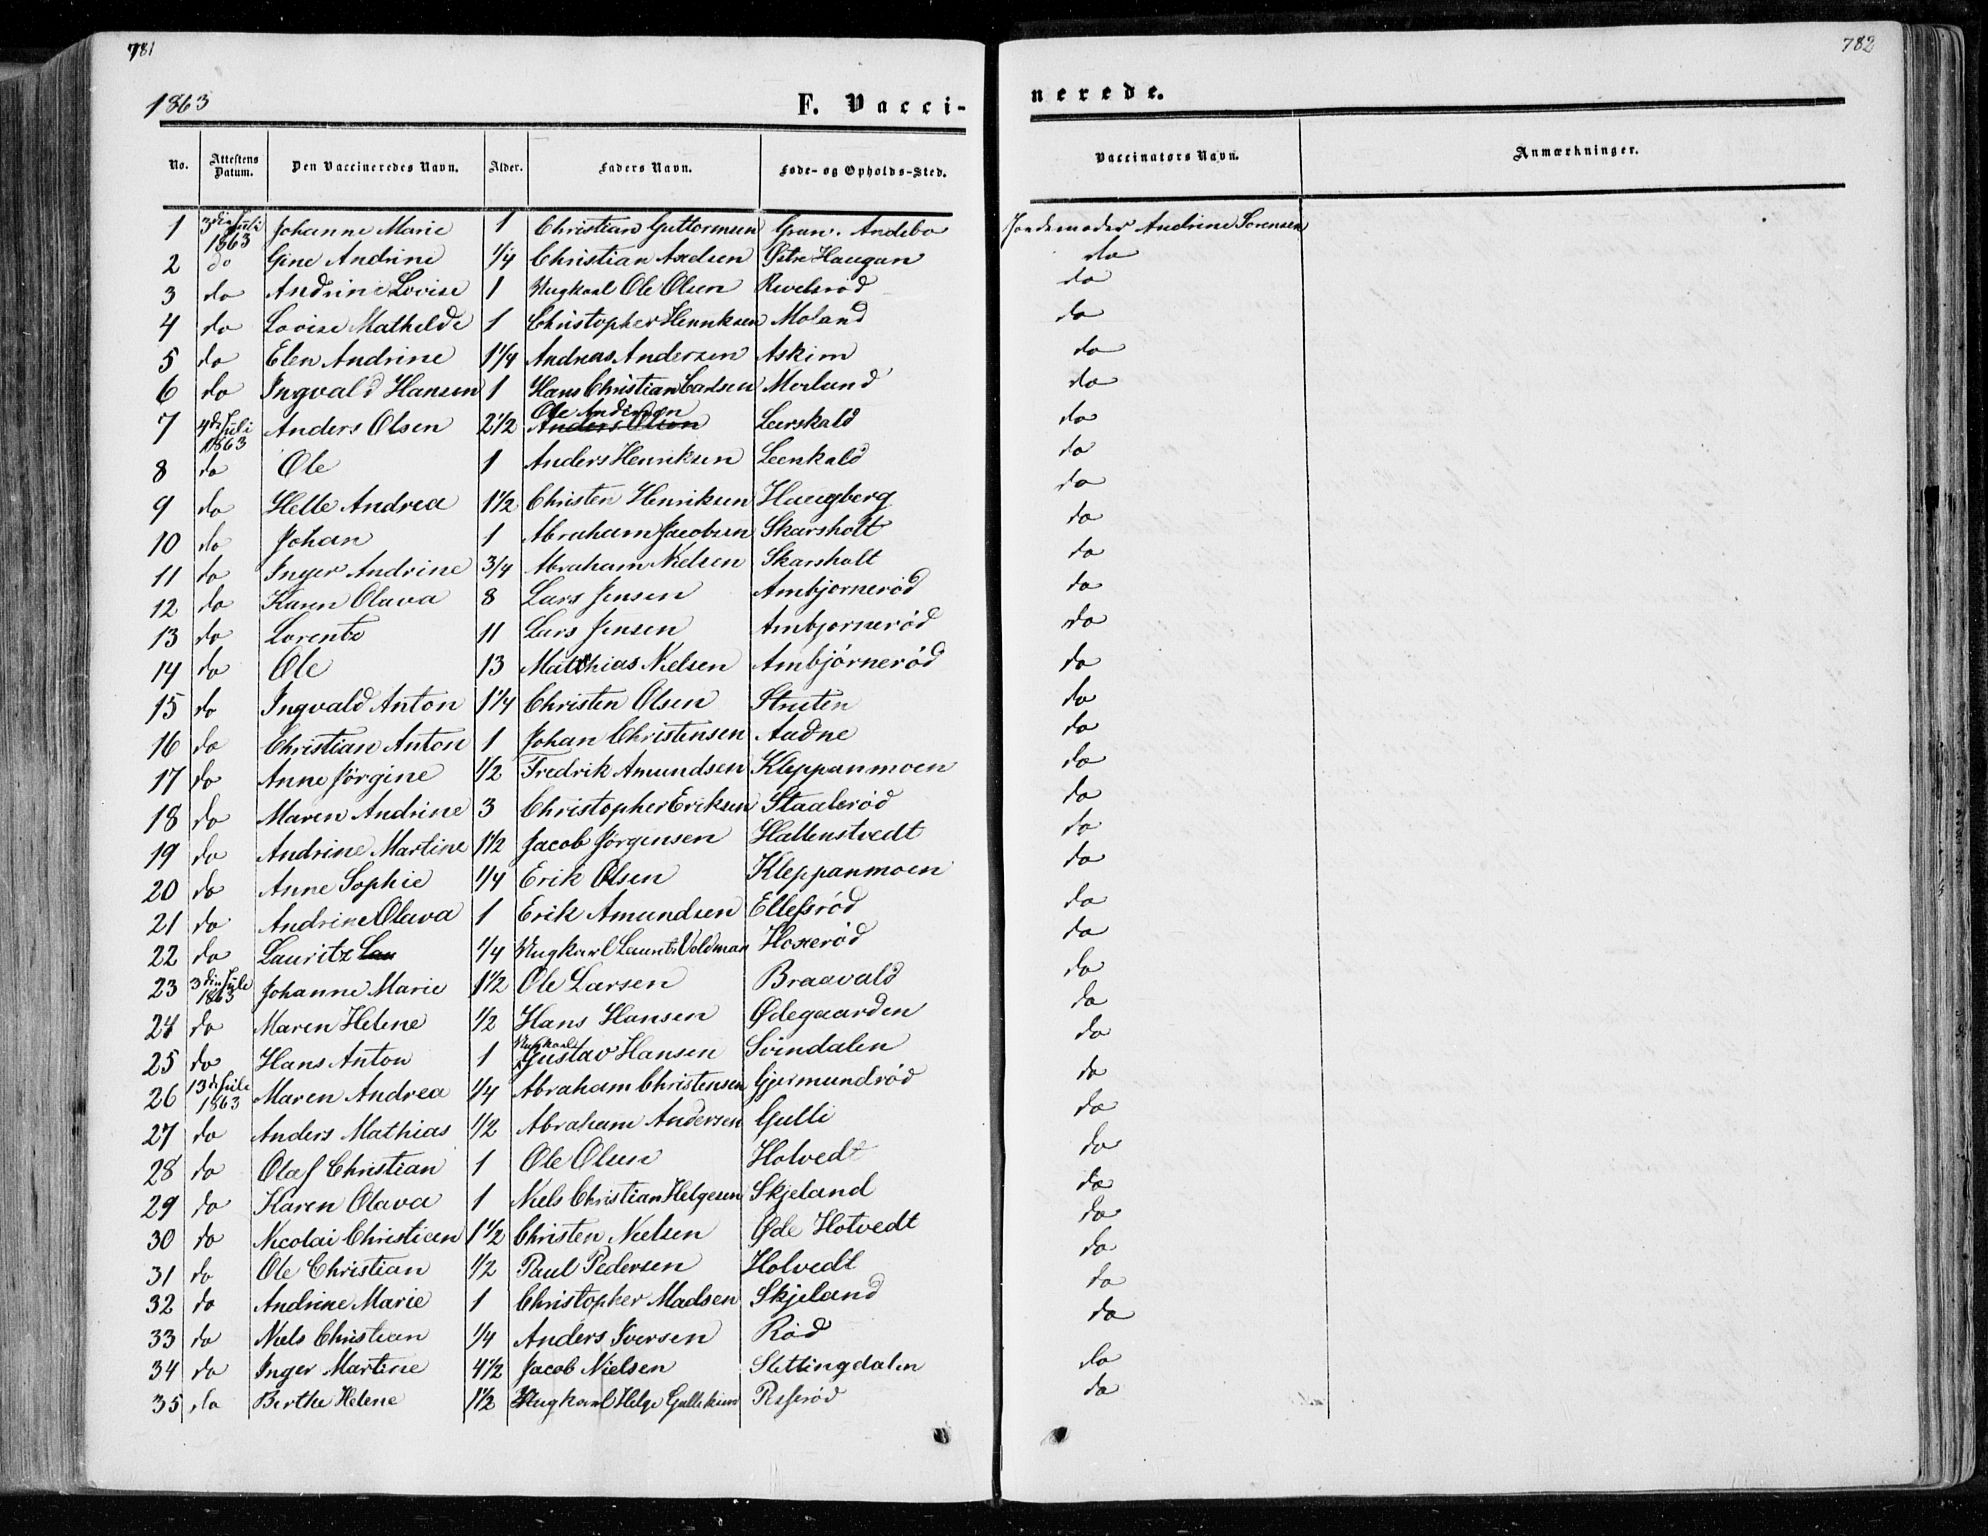 781
782
1863
F. Vacci-
nerede.
No. Attestens Datum. Den Vaccineredes Navn. Alder. Faders Navn. Føde- og Opholds-Sted. Vaccinators Navn. Anmærkninger.
1 3die Juli 1863 Johanne Marie 1 Christian Guttormsen Gran. Andebo Jordemoder Andrine Sørensen
2 do Gine Andrine 1/4 Christian Axelsen Østre Haugan do
3 do Andrine Lovise 1 Ungkarl Ole Olsen Revelsrød do
4 do Lovise Mathilde 1 Christopher Henriksen Moland do
5 do Elen Andrine 1 1/4 Andreas Andersen Askim do
6 do Ingvald Hansen 1 Hans Christian Carlsen Morlund do
7 4de Juli 1863 Anders Olsen 2 1/2 Ole Andersen Anders Olsen Leerskald do
8 do Ole 1 Anders Henriksen Leerskald do
9 do Helle Andrea 1 1/2 Christen Henriksen Haugberg do
10 do Johan 1 Abraham Jacobsen Skarsholt do
11 do Inger Andrine 3/4 Abraham Nielsen Skarsholt do
12 do Karen Olava 8 Lars Jensen Ambjornerød do
13 do Lorentz 11 Lars Jensen Ambjornerød do
14 do Ole 13 Mathias Nielsen Ambjørnerød do
15 do Ingvald Anton 1 1/4 Christen Olsen Struten do
16 do Christian Anton 1 Johan Christensen Audne do
17 do Anne Jørgine 1/2 Fredrik Amundsen Kleppanmoen do
18 do Maren Andrine 3 Christopher Eriksen Staalerød do
19 do Andrine Martine 1 1/2 Jacob Jørgensen Hallenstvedt do
20 do Anne Sophie 1/4 Erik Olsen Kleppanmoen do
21 do Andrine Olava 1 Erik Amundsen Ellefsrød do
22 do Lauritz Lau 1/4 Ungkarl Lauritz Voldman Hoxerød do
23 3die Juli 1863 Johanne Marie 1 1/2 Ole Larsen Braavald do
24 do Maren Helene 1/2 Hans Hansen Ødegaarden do
25 do Hans Anton 1 Ungkarl Gustav Hansen Svindalen do
26 13de Juli 1863 Maren Andrea 1/4 Abraham Christensen Gjermundrød do
27 do Anders Mathias 1/2 Abraham Andersen Gulli do
28 do Olaf Christian 1 Ole Olsen Hotvedt do
29 do Karen Olava 1 Niels Christian Helgesen Skjeland do
30 do Nicolai Christian 1 1/2 Christen Nielsen Øde Hotvedt do
31 do Ole Christian 1/2 Paul Pedersen Hotvedt do
32 do Andrine Marie 1 Christopher Madsen Skjeland do
33 do Niels Christian 1/4 Anders Iversen Rød do
34 do Inger Martine 4 1/2 Jacob Nielsen Slettingdalen do
35 do Berthe Helene 1 1/2 Ungkarl Helge Gulliksen do